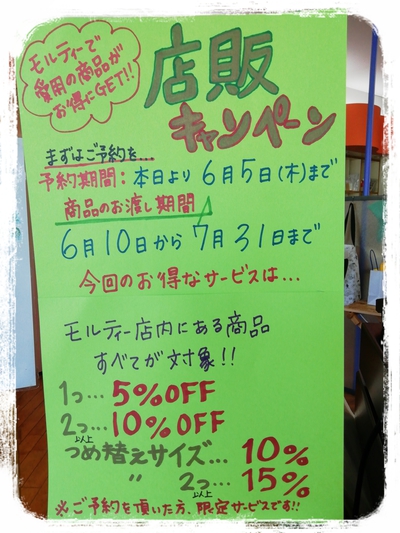 モルティーで
愛用の商品が
お得にGET!!
店販
キャンペーン
まずはご予約を…
予約期間：本日より6月5日(木)まで
商品のお渡し期間
6月10日から7月31日まで
今回のお得なサービスは…
モルティー店内にある商品
すべてが対象!!
1つ…5%OFF
2つ以上…10%OFF
つめ替えサイズ…10%
〃 2つ以上…15%
※ご予約を頂いた方、限定サービスです!!